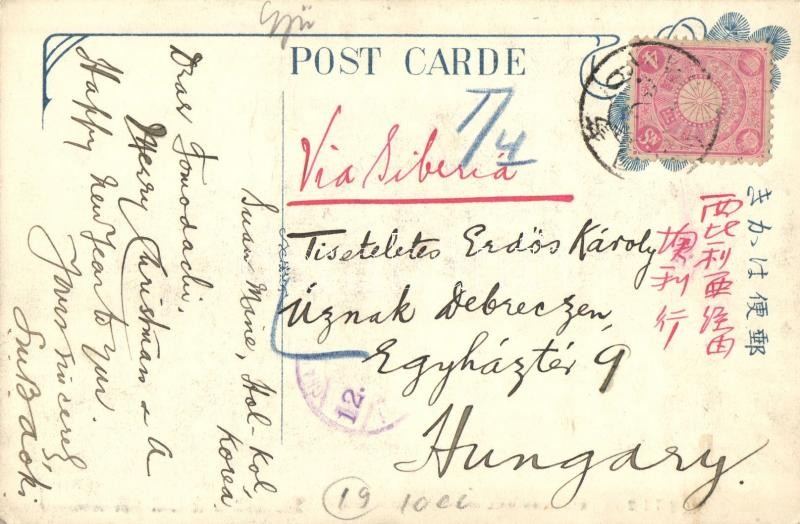 POST CARDE
T/4
Via Siberia
西比利亜経由
墺利行
きかは便郵
Tiszteletes Erdős Károly
Úrnak Debreczen,
Egyháztér 9
Hungary.
Dear Tomodachi,
Merry Christmas & A
Happy New Year to you.
Yours Sincerely,
Suan Mine, Hol-Kol,
Korea
12.
19 10 cl